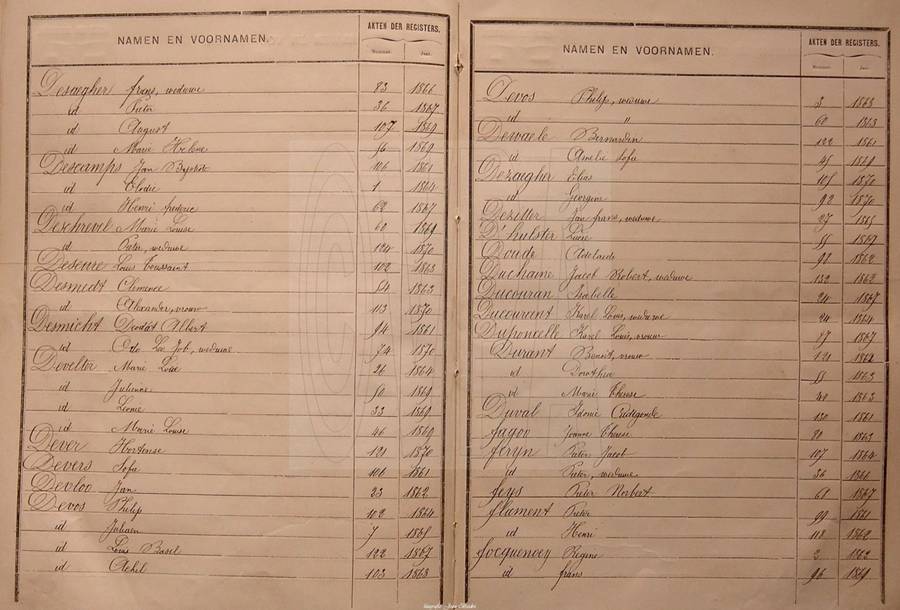 NAMEN EN VOORNAMEN.
AKTEN DER REGISTERS.
Nummer. Jaar.
Desaegher frans, weduwe 83 1866
id Pieter 36 1867
id August 107 1869
id Marie Helene 96 1869
Descamps Jan Baptist 106 1861
id Elodie 1 1864
id Henri frederic 62 1867
Deschrevel Marie Louise 60 1869
id Pieter, weduwe 124 1870
Deseure Louis Toussaint 102 1863
Desmedt Clemence 54 1863
id Alexander, vrouw 113 1870
Desmicht Deodat Albert 94 1861
id Job, weduwe 74 1870
Develter Marie 26 1864
id 50 1869
id Leonie 33 1869
id Marie Louise 46 1869
Dever Hortense 121 1870
Devers Sofie 101 1861
Devloo Jan 23 1862
Devos Philip 102 1864
id Juliaan 7
id Louis Basiel 122 1867
id Achil 103 1868
NAMEN EN VOORNAMEN.
AKTEN DER REGISTERS.
Nummer. Jaar.
Devos Philip, weduwe 3 1863
id " 60 1863
Dewaele Bernardin 122 1861
id Amelie Sofie 45
Dezaegher Elias 105 1870
id Georgine 92 1870
Dezitter Jan frans, weduwe 27 1865
D'hulster Lucie 55 1867
Doude Adelaide 1862
Duchaine Jacob Robert, weduwe 132 1862
Ducouran Isabelle 24 1867
Ducourant Karel Louis, weduwe 24 1864
Duponcelle Karel Louis, vrouw 17 1867
Durant Benoit, vrouw 121 1862
id Dorothea 55 1863
id Marie Therese 40 1863
Duval Idonie Cridegonde 130 1861
fagoo Joanne Therese 80 1863
feryn Pieter Jacob 107 1864
id Pieter, weduwe 36 1866
feys Pieter Norbert 61 1867
flament Pieter 99 1861
id Henri 118 1862
focquenoey Regine 2 1862
id frans 96 1869